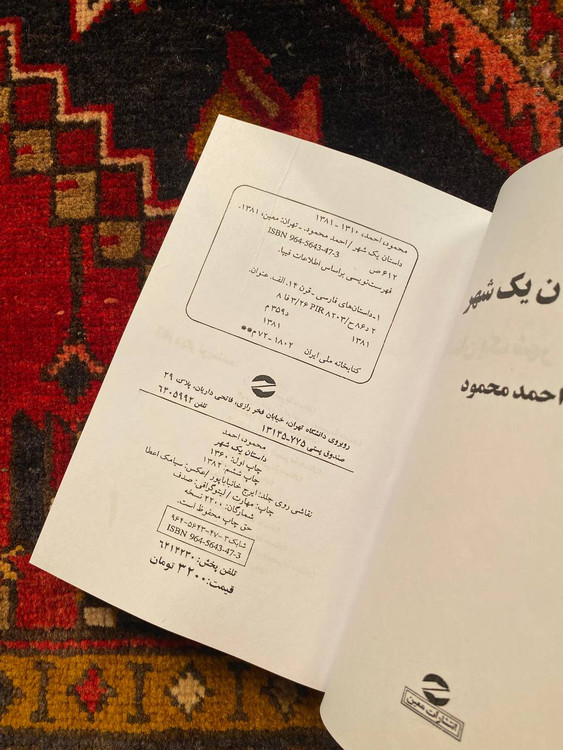 محمود، احمد، ۱۳۱۰ - ۱۳۸۱
داستان یک شهر / احمد محمود. - تهران: معین، ۱۳۸۱.
ISBN 964-5643-47-3
۶۱۲ ص
فهرست‌نویسی براساس اطلاعات فیپا.
۱- داستان‌های فارسی - قرن ۱۴. الف. عنوان.
۲ د۸۶ ح/۸۲۰۳ PIR ۳/۶۲ فا ۸
۱۳۸۱ د۳۵۹م
۱۳۸۱
کتابخانه ملی ایران ۱۸۰۲-۷۲م**
روبروی دانشگاه تهران، خیابان فخر رازی، فاتحی داریان، پلاک ۲۹
صندوق پستی ۷۷۵-۱۳۱۴۵ تلفن ۶۴۰۵۹۹۲
محمود احمد
داستان یک شهر
چاپ اول: ۱۳۶۰
چاپ ششم: ۱۳۸۲
نقاشی روی جلد: ایرج خانباباپور / عکس: سیامک اعطا
چاپ: مهارت / لیتوگرافی: صدف
شمارگان: ۲۲۰۰ نسخه
حق چاپ محفوظ است.
شابک ۳-۴۷-۵۶۴۳-۹۶۴
ISBN 964-5643-47-3
تلفن پخش: ۶۴۱۴۲۳۰
قیمت: ۳۲۰۰ تومان
ن یک شهر
احمد محمود
انتشارات معین